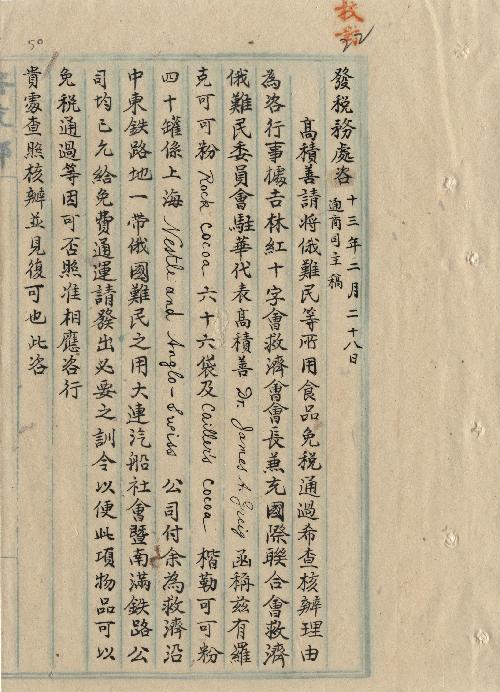 校訖
22
50
發稅務處咨 十三年二月二十八日
通商司主稿
高積善請將俄難民等所用食品免稅通過希查核辦理由
為咨行事據吉林紅十字會救濟會會長兼充國際聯合會救濟
俄難民委員會駐華代表高積善 Dr. James A. Greig 函稱茲有羅
克可可粉 Rock Cocoa 六十六袋及 Cailler's Cocoa 楷勒可可粉
四十罐係上海 Nestle and Anglo-Swiss 公司付余為救濟沿
中東鉄路地一帶俄國難民之用大連汽船社會暨南滿鉄路公
司均已允給免費通運請發出必要之訓令以便此項物品可以
免稅通過等因可否照准相應咨行
貴處查照核辦並見復可也此咨